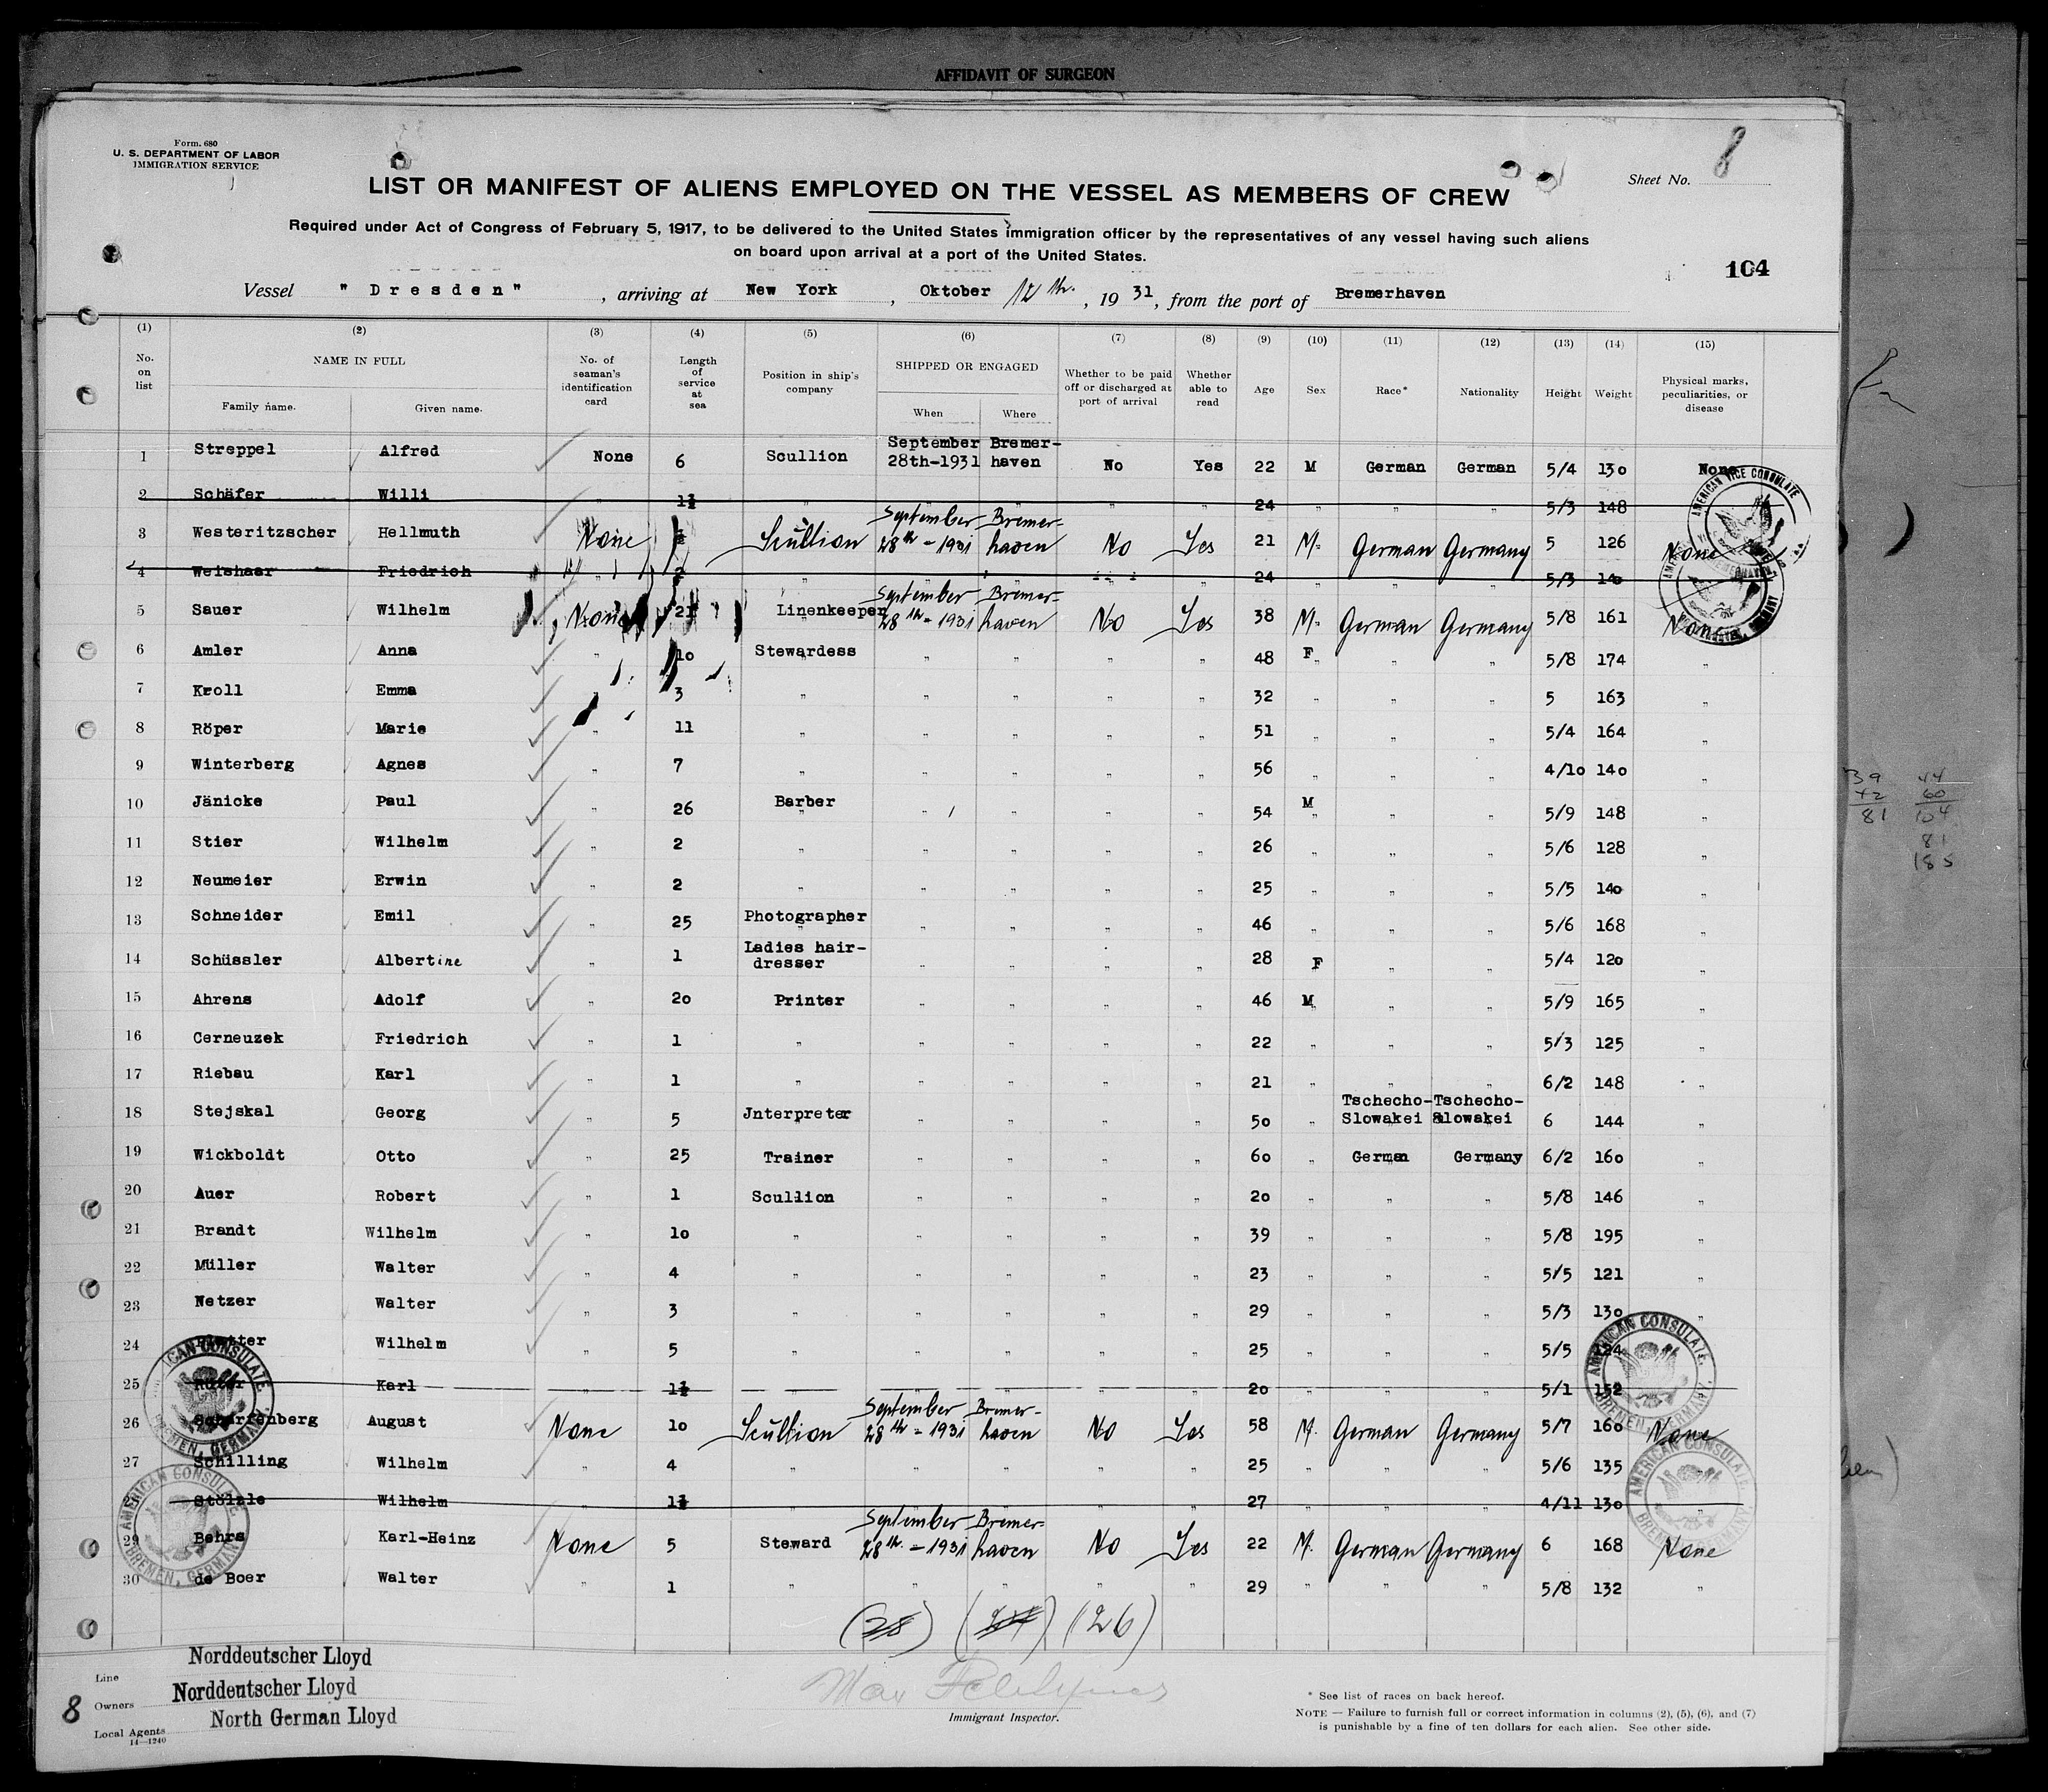 AFFIDAVIT OF SURGEON
Form. 680
U. S. DEPARTMENT OF LABOR
IMMIGRATION SERVICE
Sheet No. 8
LIST OR MANIFEST OF ALIENS EMPLOYED ON THE VESSEL AS MEMBERS OF CREW
Required under Act of Congress of February 5, 1917, to be delivered to the United States immigration officer by the representatives of any vessel having such aliens
on board upon arrival at a port of the United States.
104
Vessel "Dresden", arriving at New York, Oktober 12 th., 1931, from the port of Bremerhaven
(1) (2) (3) (4) (5) (6) (7) (8) (9) (10) (11) (12) (13) (14) (15)
No. on list NAME IN FULL Family name. Given name. No. of seaman's identification card Length of service at sea Position in ship's company SHIPPED OR ENGAGED When Where Whether to be paid off or discharged at port of arrival Whether able to read Age Sex Race* Nationality Height Weight Physical marks, peculiarities, or disease
1 Streppel Alfred None 6 Scullion September 28th-1931 Bremer-haven No Yes 22 M German German 5/4 130 None
2 Schäfer Willi " 1½ " " " " " 24 " " " 5/3 148
3 Westeritzscher Hellmuth None ½ Scullion September 28th-1931 Bremer-haven No Yes 21 M. German Germany 5 126 None
4 Weishaar Friedrich " 2 " " " " " 24 " " " 5/3 140
5 Sauer Wilhelm None 21 Linenkeeper September 28th-1931 Bremer-haven No Yes 38 M. German Germany 5/8 161 None
6 Amler Anna " 10 Stewardess " " " " 48 F " " 5/8 174 "
7 Kroll Emma " 3 " " " " " 32 " " " 5 163 "
8 Röper Marie " 11 " " " " " 51 " " " 5/4 164 "
9 Winterberg Agnes " 7 " " " " " 56 " " " 4/10 140 "
10 Jänicke Paul " 26 Barber " " " " 54 M " " 5/9 148 "
11 Stier Wilhelm " 2 " " " " " 26 " " " 5/6 128 "
12 Neumeier Erwin " 2 " " " " " 25 " " " 5/5 140 "
13 Schneider Emil " 25 Photographer " " " " 46 " " " 5/6 168 "
14 Schüssler Albertine " 1 Ladies hair-dresser " " " " 28 F " " 5/4 120 "
15 Ahrens Adolf " 20 Printer " " " " 46 M " " 5/9 165 "
16 Cerneuzek Friedrich " 1 " " " " " 22 " " " 5/3 125 "
17 Riebau Karl " 1 " " " " " 21 " " " 6/2 148 "
18 Stejskal Georg " 5 Jnterpreter " " " " 50 " Tschecho-Slowakei Tschecho-Slowakei 6 144 "
19 Wickboldt Otto " 25 Trainer " " " " 60 " German Germany 6/2 160 "
20 Auer Robert " 1 Scullion " " " " 20 " " " 5/8 146 "
21 Brandt Wilhelm " 10 " " " " " 39 " " " 5/8 195 "
22 Müller Walter " 4 " " " " " 23 " " " 5/5 121 "
23 Netzer Walter " 3 " " " " " 29 " " " 5/3 130 "
24 Wilhelm " 5 " " " " " 25 " " " 5/5 124
25 Karl " 1½ " " " " " 20 " " " 5/1 152
26 Scharfenberg August None 10 Scullion September 28th-1931 Bremer-haven No Yes 58 M. German Germany 5/7 160 None
27 Schilling Wilhelm " 4 " " " " " 25 " " " 5/6 135 "
28 Stölzle Wilhelm " 1½ " " " " " 27 " " " 4/11 130 "
29 Behrs Karl-Heinz None 5 Steward September 28th.-1931 Bremer-haven No Yes 22 M. German Germany 6 168 None
30 de Boer Walter " 1 " " " " " 29 " " " 5/8 132 "
AMERICAN VICE CONSULATE
AMERICAN CONSULATE, BREMEN, GERMANY
AMERICAN CONSULATE, BREMEN, GERMANY
AMERICAN CONSULATE, BREMEN, GERMANY
AMERICAN CONSULATE, BREMEN, GERMANY
39 44
42 60
81 104
81
185
(28) (27) (26)
Line Norddeutscher Lloyd
Owners Norddeutscher Lloyd
Local Agents North German Lloyd
14—1240
8
Max
Immigrant Inspector.
* See list of races on back hereof.
NOTE — Failure to furnish full or correct information in columns (2), (5), (6), and (7)
is punishable by a fine of ten dollars for each alien. See other side.